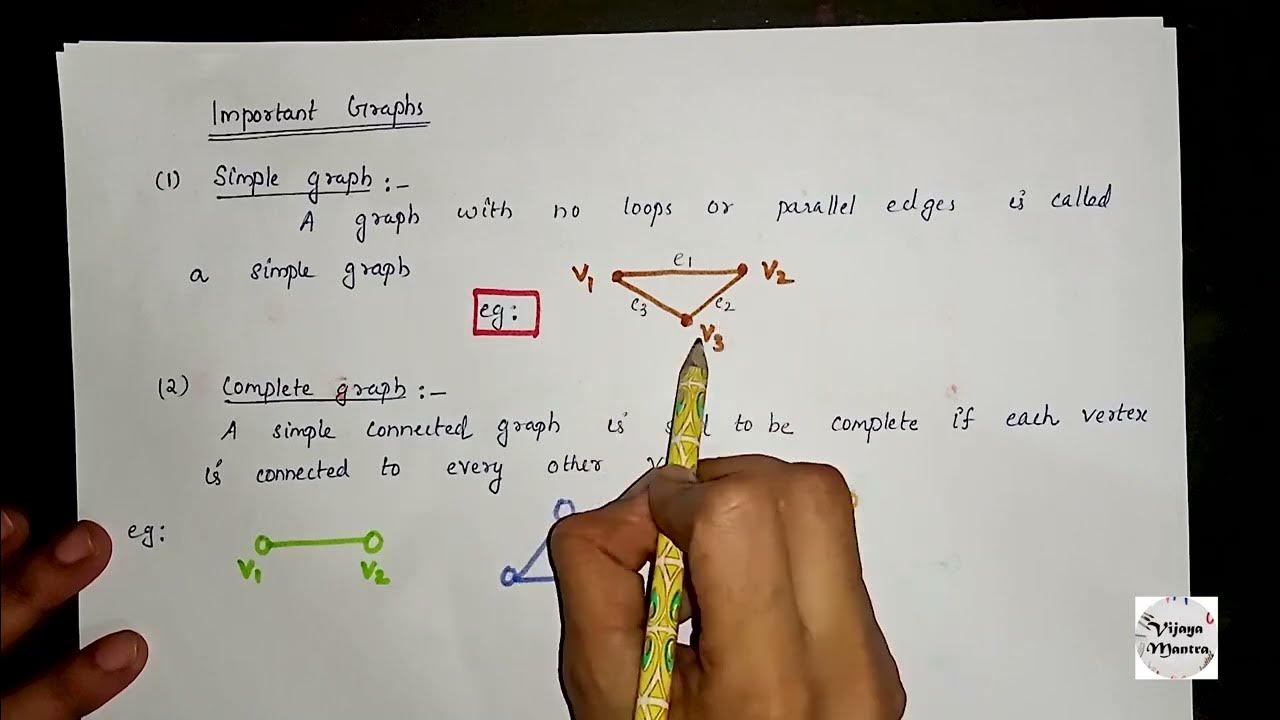 Important Graphs
(1) Simple graph :-
A graph with no loops or parallel edges is called
a simple graph
eg:
V1 e1 V2
e3 e2
V3
(2) Complete graph :-
A simple connected graph is to be complete if each vertex
is connected to every other
eg:
V1 V2
Vijaya
Mantra